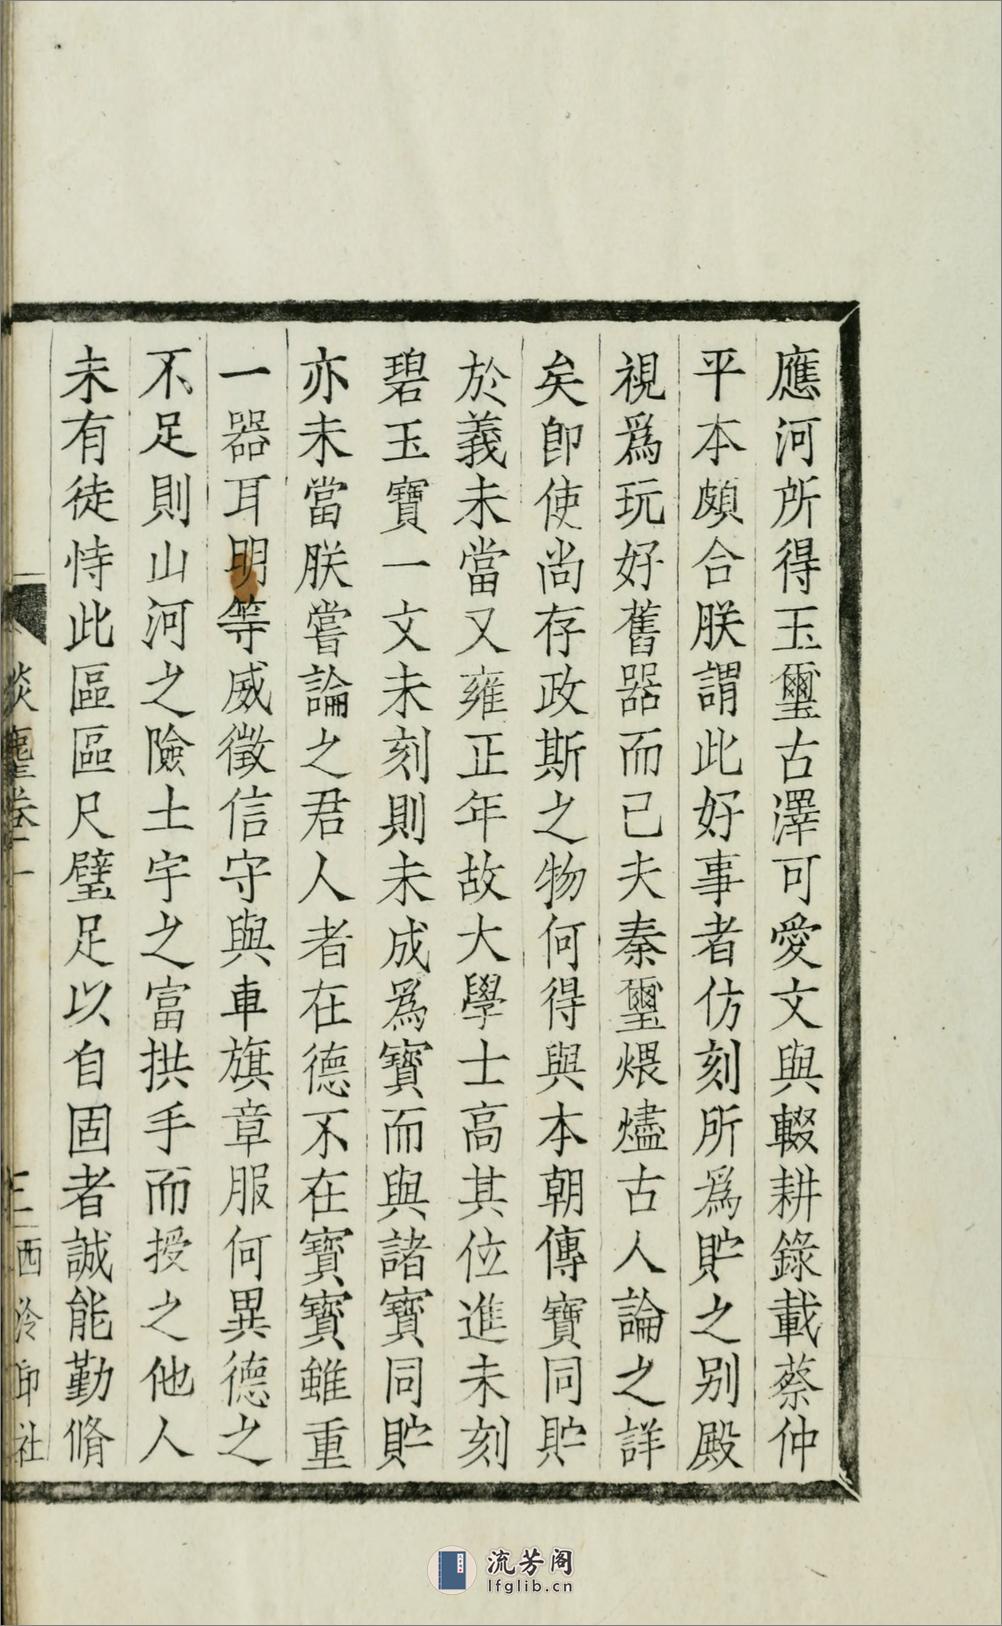 應河所得玉璽古澤可愛文與輟耕錄載蔡仲
平本頗合朕謂此好事者仿刻所爲貯之別殿
視爲玩好舊器而已夫秦璽煨燼古人論之詳
矣卽使尚存政斯之物何得與本朝傳寶同貯
於義未當又雍正年故大學士高其位進未刻
碧玉寶一文未刻則未成爲寶而與諸寶同貯
亦未當朕嘗論之君人者在德不在寶寶雖重
一器耳明等威徵信守與車旗章服何異德之
不足則山河之險土宇之富拱手而授之他人
未有徒恃此區區尺璧足以自固者誠能勤脩
談麈卷一
三
西泠印社
流芳阁
lfglib.cn